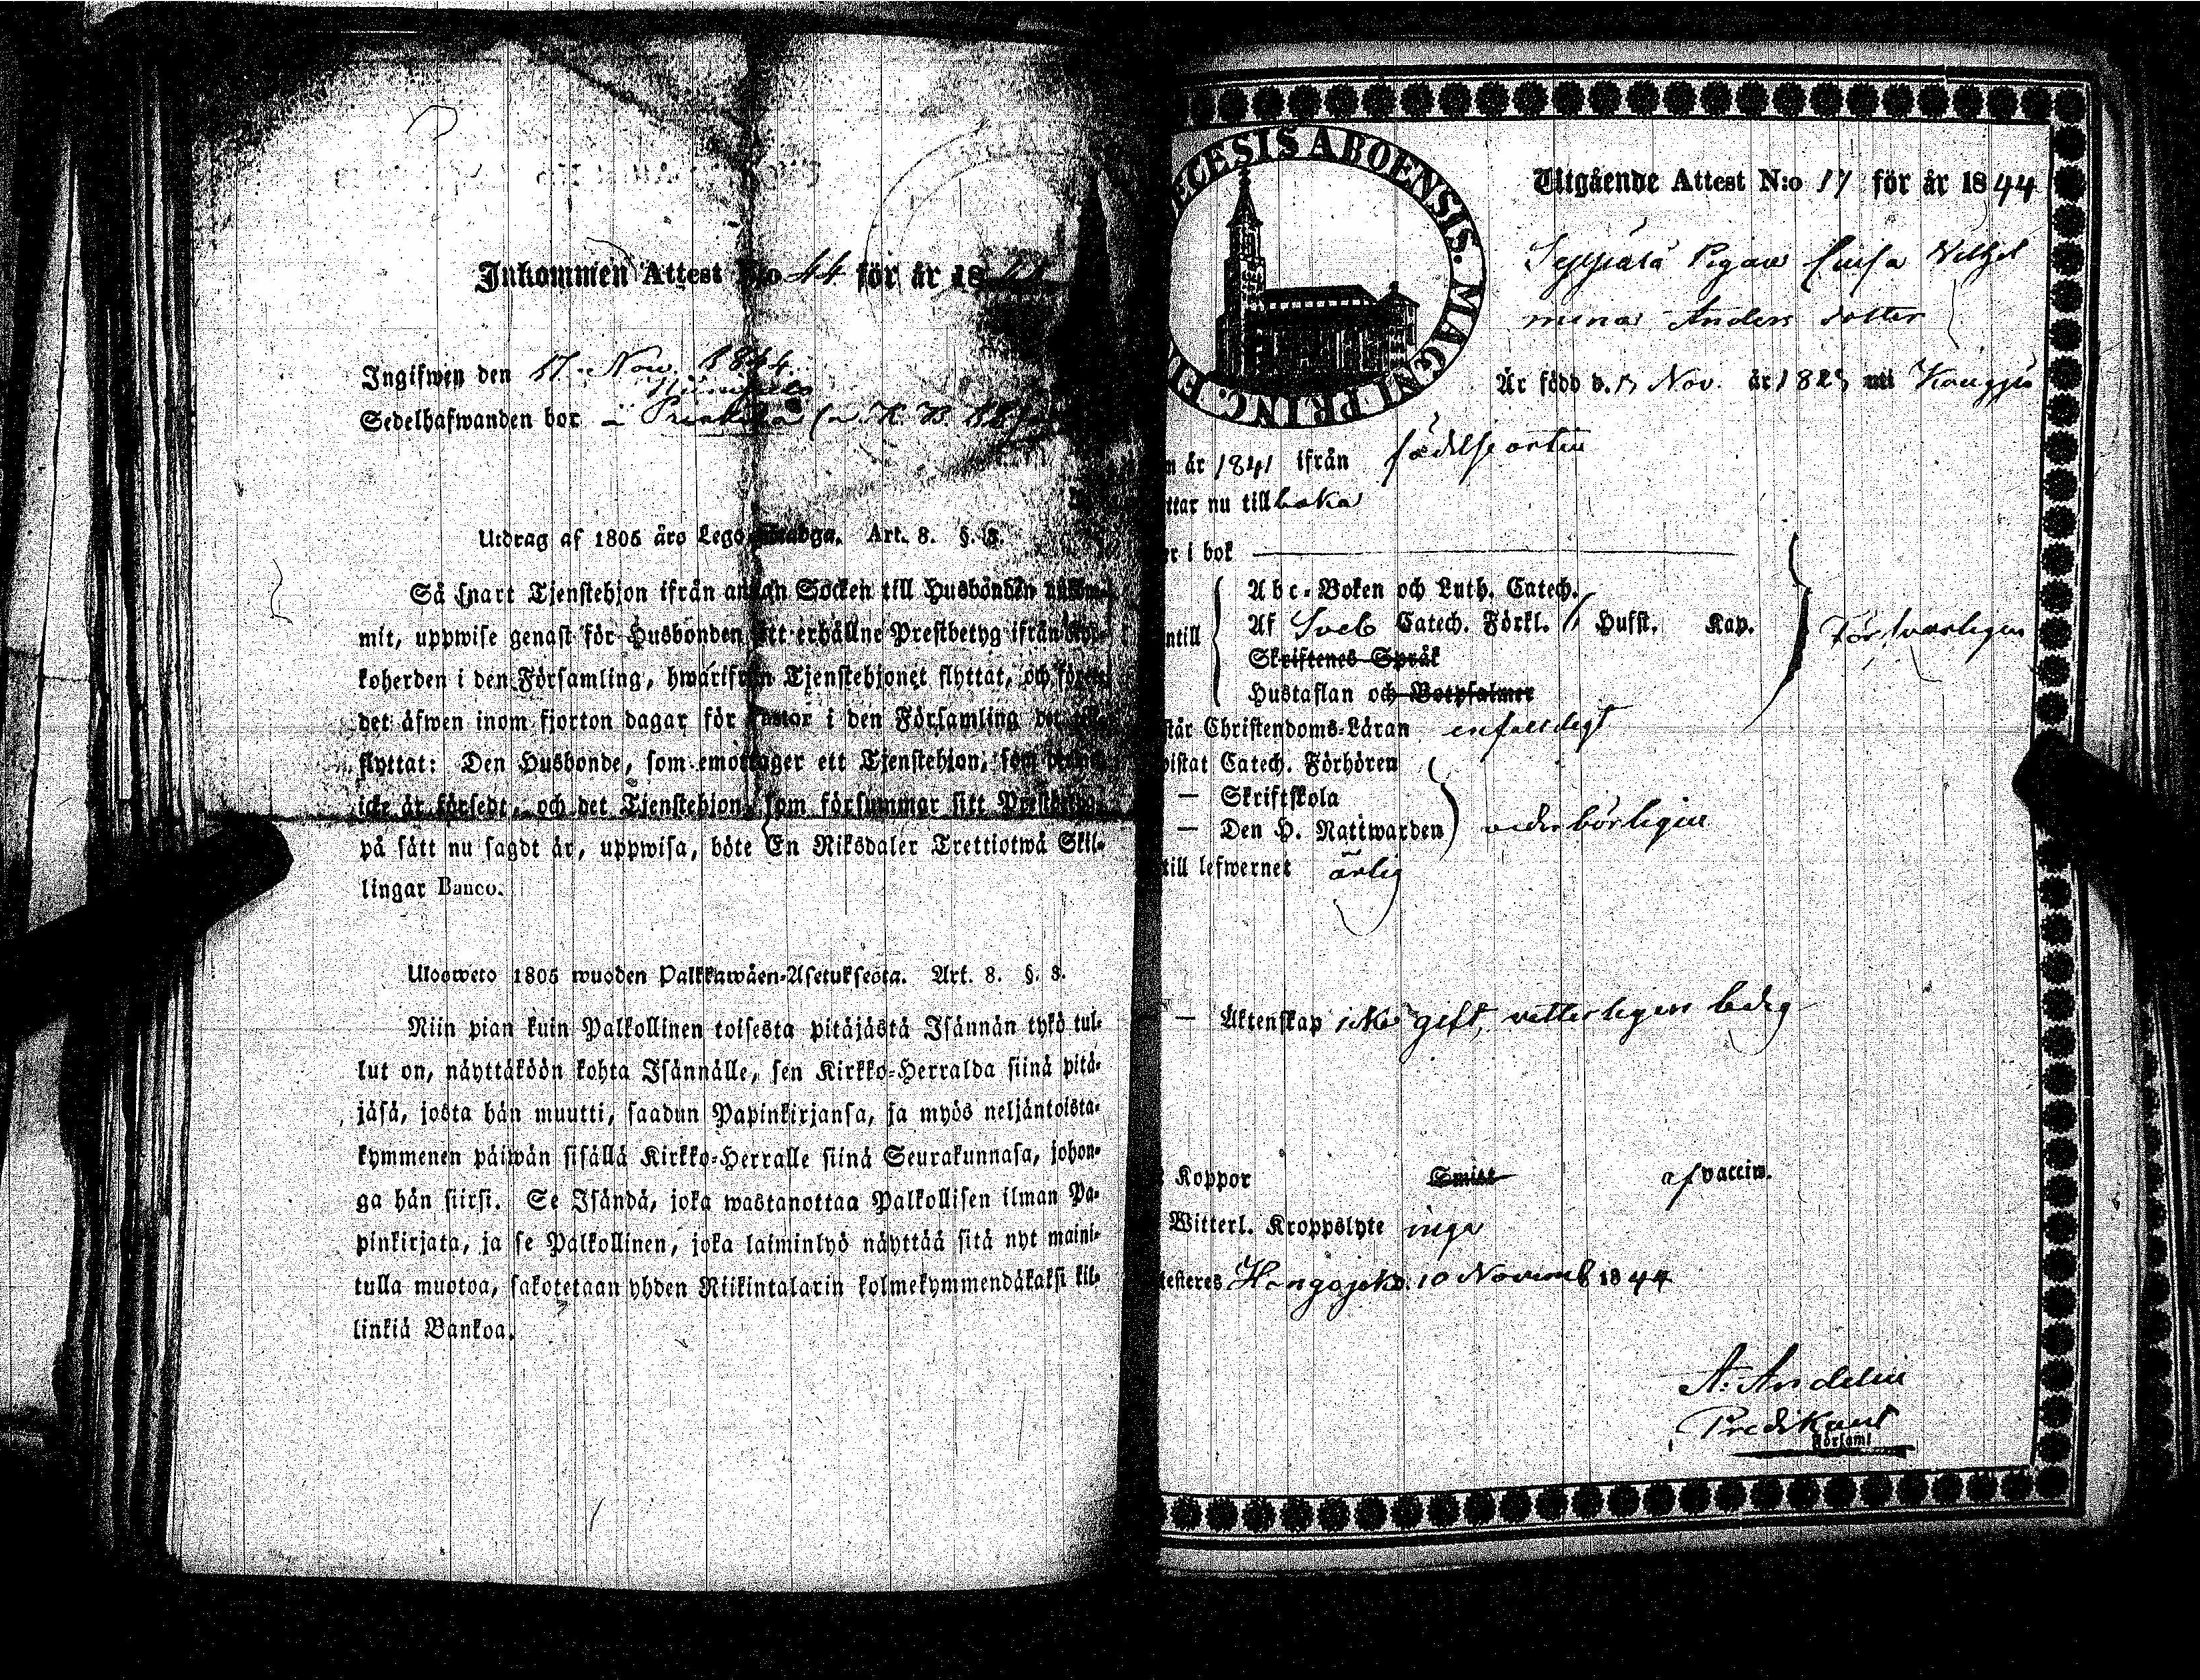 Inkommen Attest N:o 44 för år 1844
Ingifwen den 17. Nov. 1844.
Sedelhafwanden bor
Utdrag af 1805 års Lego Art. 8. §. 8.
Så snart Tjenstehjon ifrån annan Socken till Husbonden
mit, uppwise genast för Husbonden sitt erhållne Prestbetyg ifrån
koherden i den Församling, hwarifrån Tjenstehjonet flyttat, och
det äfwen inom fjorton dagar för Pastor i den Församling
flyttat: Den Husbonde, som emottager ett Tjenstehjon, som
icke är försedt, och det Tjenstehjon, som försummar sitt
på sätt nu sagdt är, uppwisa, böte En Riksdaler Trettiotwå Skil-
lingar Banco.
Uloosweto 1805 wuoden Palkkawäen-Asetuksesta. Art. 8. §. 8.
Niin pian kuin Palkollinen toisesta pitäjästä Isännän tykö tul-
lut on, näyttäköön kohta Isännälle, sen Kirkko-Herralda siinä pitä-
jäsä, josta hän muutti, saadun Papinkirjansa, ja myös neljäntoista-
kymmenen päiwän sisällä Kirkko-Herralle siinä Seurakunnasa, johon-
ga hän siirsi. Se Isändä, joka wastanottaa Palkollisen ilman Pa-
pinkirjata, ja se Palkollinen, joka laiminlyö näyttää sitä nyt maini-
tulla muotoa, sakotetaan yhden Riikintalarin kolmekymmendäkaksi kil-
linkiä Bankoa.
ECESIS ABOENSIS. MAGNI PRINC. FIN
Utgående Attest N:o 17 för år 1844
Seppälä Pigan Lovisa Vilhel
mina Anders dotter
Är född d. 13 Nov. år 1823 uti
n år 1841 ifrån födelse orten
ttar nu tillbaka
er i bok
Abc-Boken och Luth. Catech.
Af Sveb Catech. Förkl. Husst. Kap.
Skriftenes Språk
ntill
Försvarligen
Hustaflan och Botpsalmer
står Christendoms-Läran enfaldigt
wistat Catech. Förhören
— Skriftskola
— Den H. Nattwarden
vederbörligen
till lefwernet ärlig
— Äktenskap icke gift, vetterligen ledig
Koppor Smitt af vaccin.
Witterl. Kroppslyte inga
testeres Hongojoki d. 10 Novemb 1844
A. Andelin
Predikant
Församl